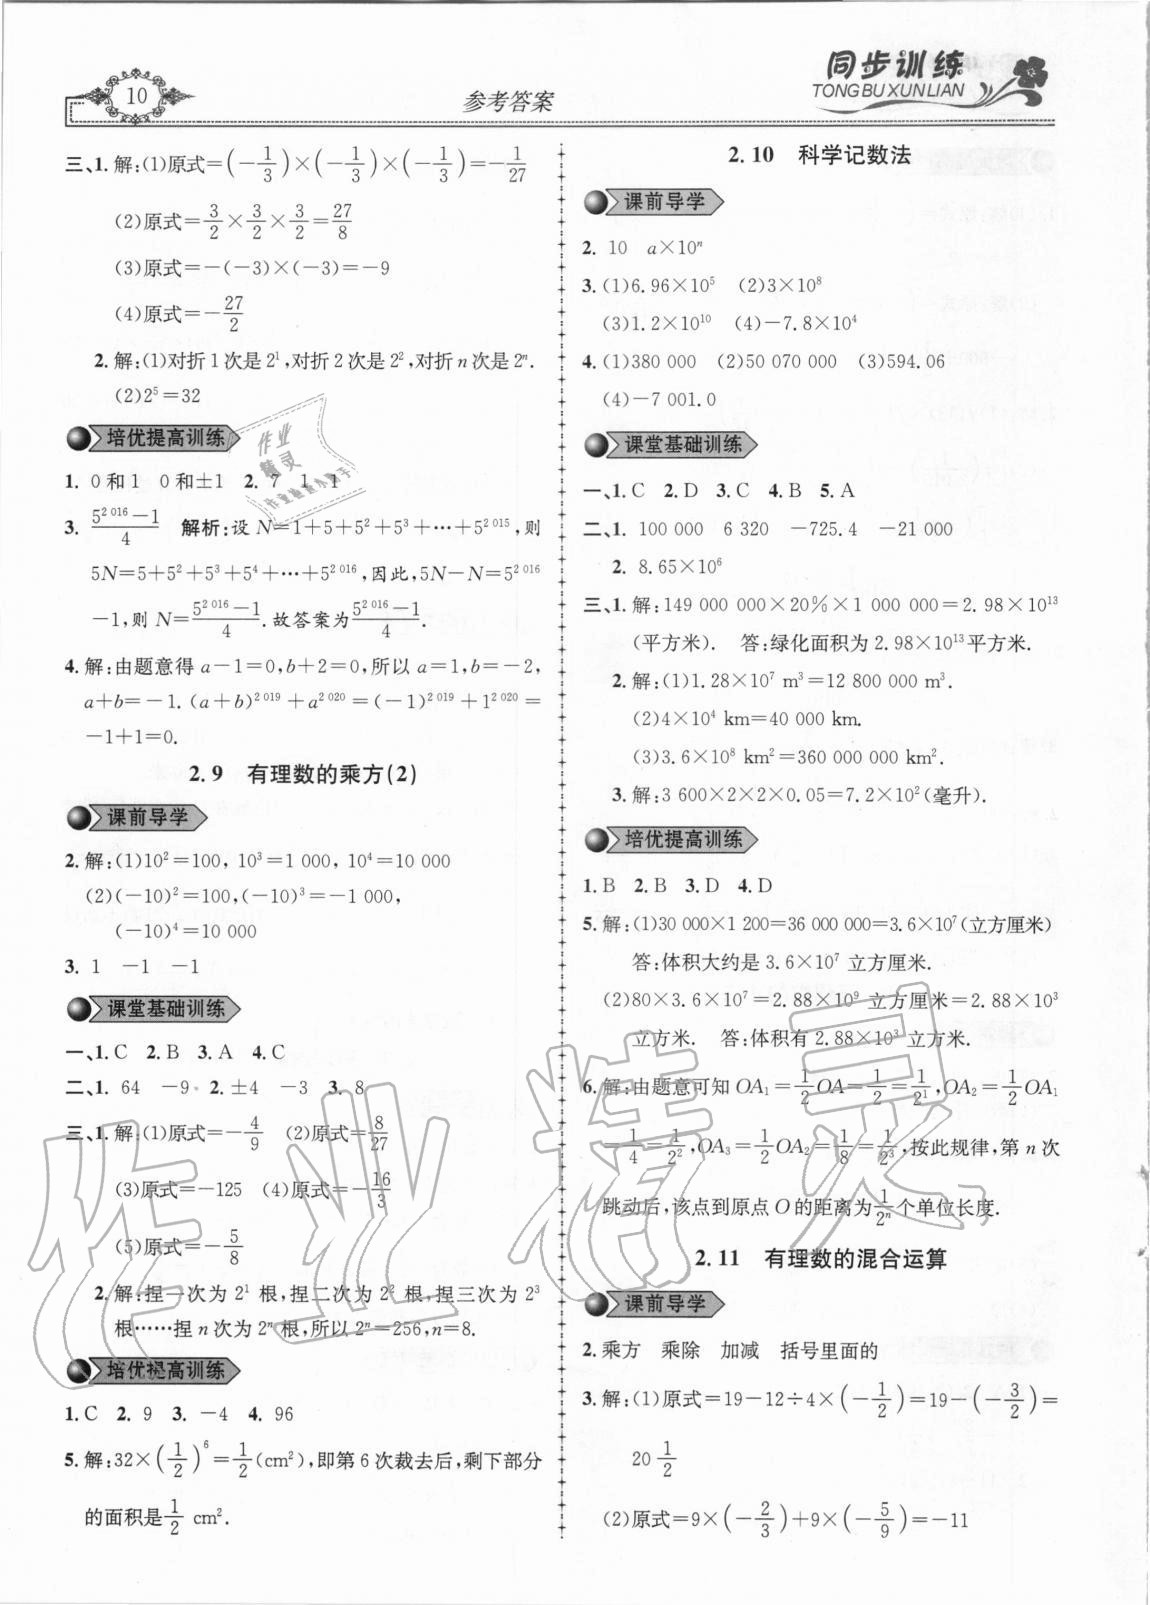 10
参考答案
同步训练
TONGBU XUNLIAN
三、1. 解:(1)原式=(-1/3)×(-1/3)×(-1/3)=-1/27
(2)原式=3/2×3/2×3/2=27/8
(3)原式=-(-3)×(-3)=-9
(4)原式=-27/2
2. 解:(1)对折1次是2¹,对折2次是2²,对折n次是2ⁿ.
(2)2⁵=32
培优提高训练
1. 0和1 0和±1 2. 7 1 1
3. (5^{2 016}-1)/4 解析:设N=1+5+5²+5³+…+5^{2 015},则
5N=5+5²+5³+5⁴+…+5^{2 016},因此,5N-N=5^{2 016}
-1,则N=(5^{2 016}-1)/4.故答案为(5^{2 016}-1)/4.
4. 解:由题意得a-1=0,b+2=0,所以a=1,b=-2,
a+b=-1.(a+b)^{2 019}+a^{2 020}=(-1)^{2 019}+1^{2 020}=
-1+1=0.
2.9 有理数的乘方(2)
课前导学
2. 解:(1)10²=100,10³=1 000,10⁴=10 000
(2)(-10)²=100,(-10)³=-1 000,
(-10)⁴=10 000
3. 1 -1 -1
课堂基础训练
一、1. C 2. B 3. A 4. C
二、1. 64 -9 2. ±4 -3 3. 8
三、1. 解:(1)原式=-4/9 (2)原式=8/27
(3)原式=-125 (4)原式=-16/3
(5)原式=-5/8
2. 解:捏一次为2¹根,捏二次为2²根,捏三次为2³
根……捏n次为2ⁿ根,所以2ⁿ=256,n=8.
培优提高训练
1. C 2. 9 3. -4 4. 96
5. 解:32×(1/2)⁶=1/2(cm²),即第6次裁去后,剩下部分
的面积是1/2 cm².
2.10 科学记数法
课前导学
2. 10 a×10ⁿ
3. (1)6.96×10⁵ (2)3×10⁸
(3)1.2×10¹⁰ (4)-7.8×10⁴
4. (1)380 000 (2)50 070 000 (3)594.06
(4)-7 001.0
课堂基础训练
一、1. C 2. D 3. C 4. B 5. A
二、1. 100 000 6 320 -725.4 -21 000
2. 8.65×10⁶
三、1. 解:149 000 000×20%×1 000 000=2.98×10¹³
(平方米). 答:绿化面积为2.98×10¹³平方米.
2. 解:(1)1.28×10⁷ m³=12 800 000 m³.
(2)4×10⁴ km=40 000 km.
(3)3.6×10⁸ km²=360 000 000 km².
3. 解:3 600×2×2×0.05=7.2×10²(毫升).
培优提高训练
1. B 2. B 3. D 4. D
5. 解:(1)30 000×1 200=36 000 000=3.6×10⁷(立方厘米)
答:体积大约是3.6×10⁷立方厘米.
(2)80×3.6×10⁷=2.88×10⁹立方厘米=2.88×10³
立方米. 答:体积有2.88×10³立方米.
6. 解:由题意可知OA₁=1/2OA=1/2=1/2¹,OA₂=1/2OA₁
=1/4=1/2²,OA₃=1/2OA₂=1/8=1/2³,按此规律,第n次
跳动后,该点到原点O的距离为1/2ⁿ个单位长度.
2.11 有理数的混合运算
课前导学
2. 乘方 乘除 加减 括号里面的
3. 解:(1)原式=19-12÷4×(-1/2)=19-(-3/2)=
20 1/2
(2)原式=9×(-2/3)+9×(-5/9)=-11
作业精灵
作业精灵